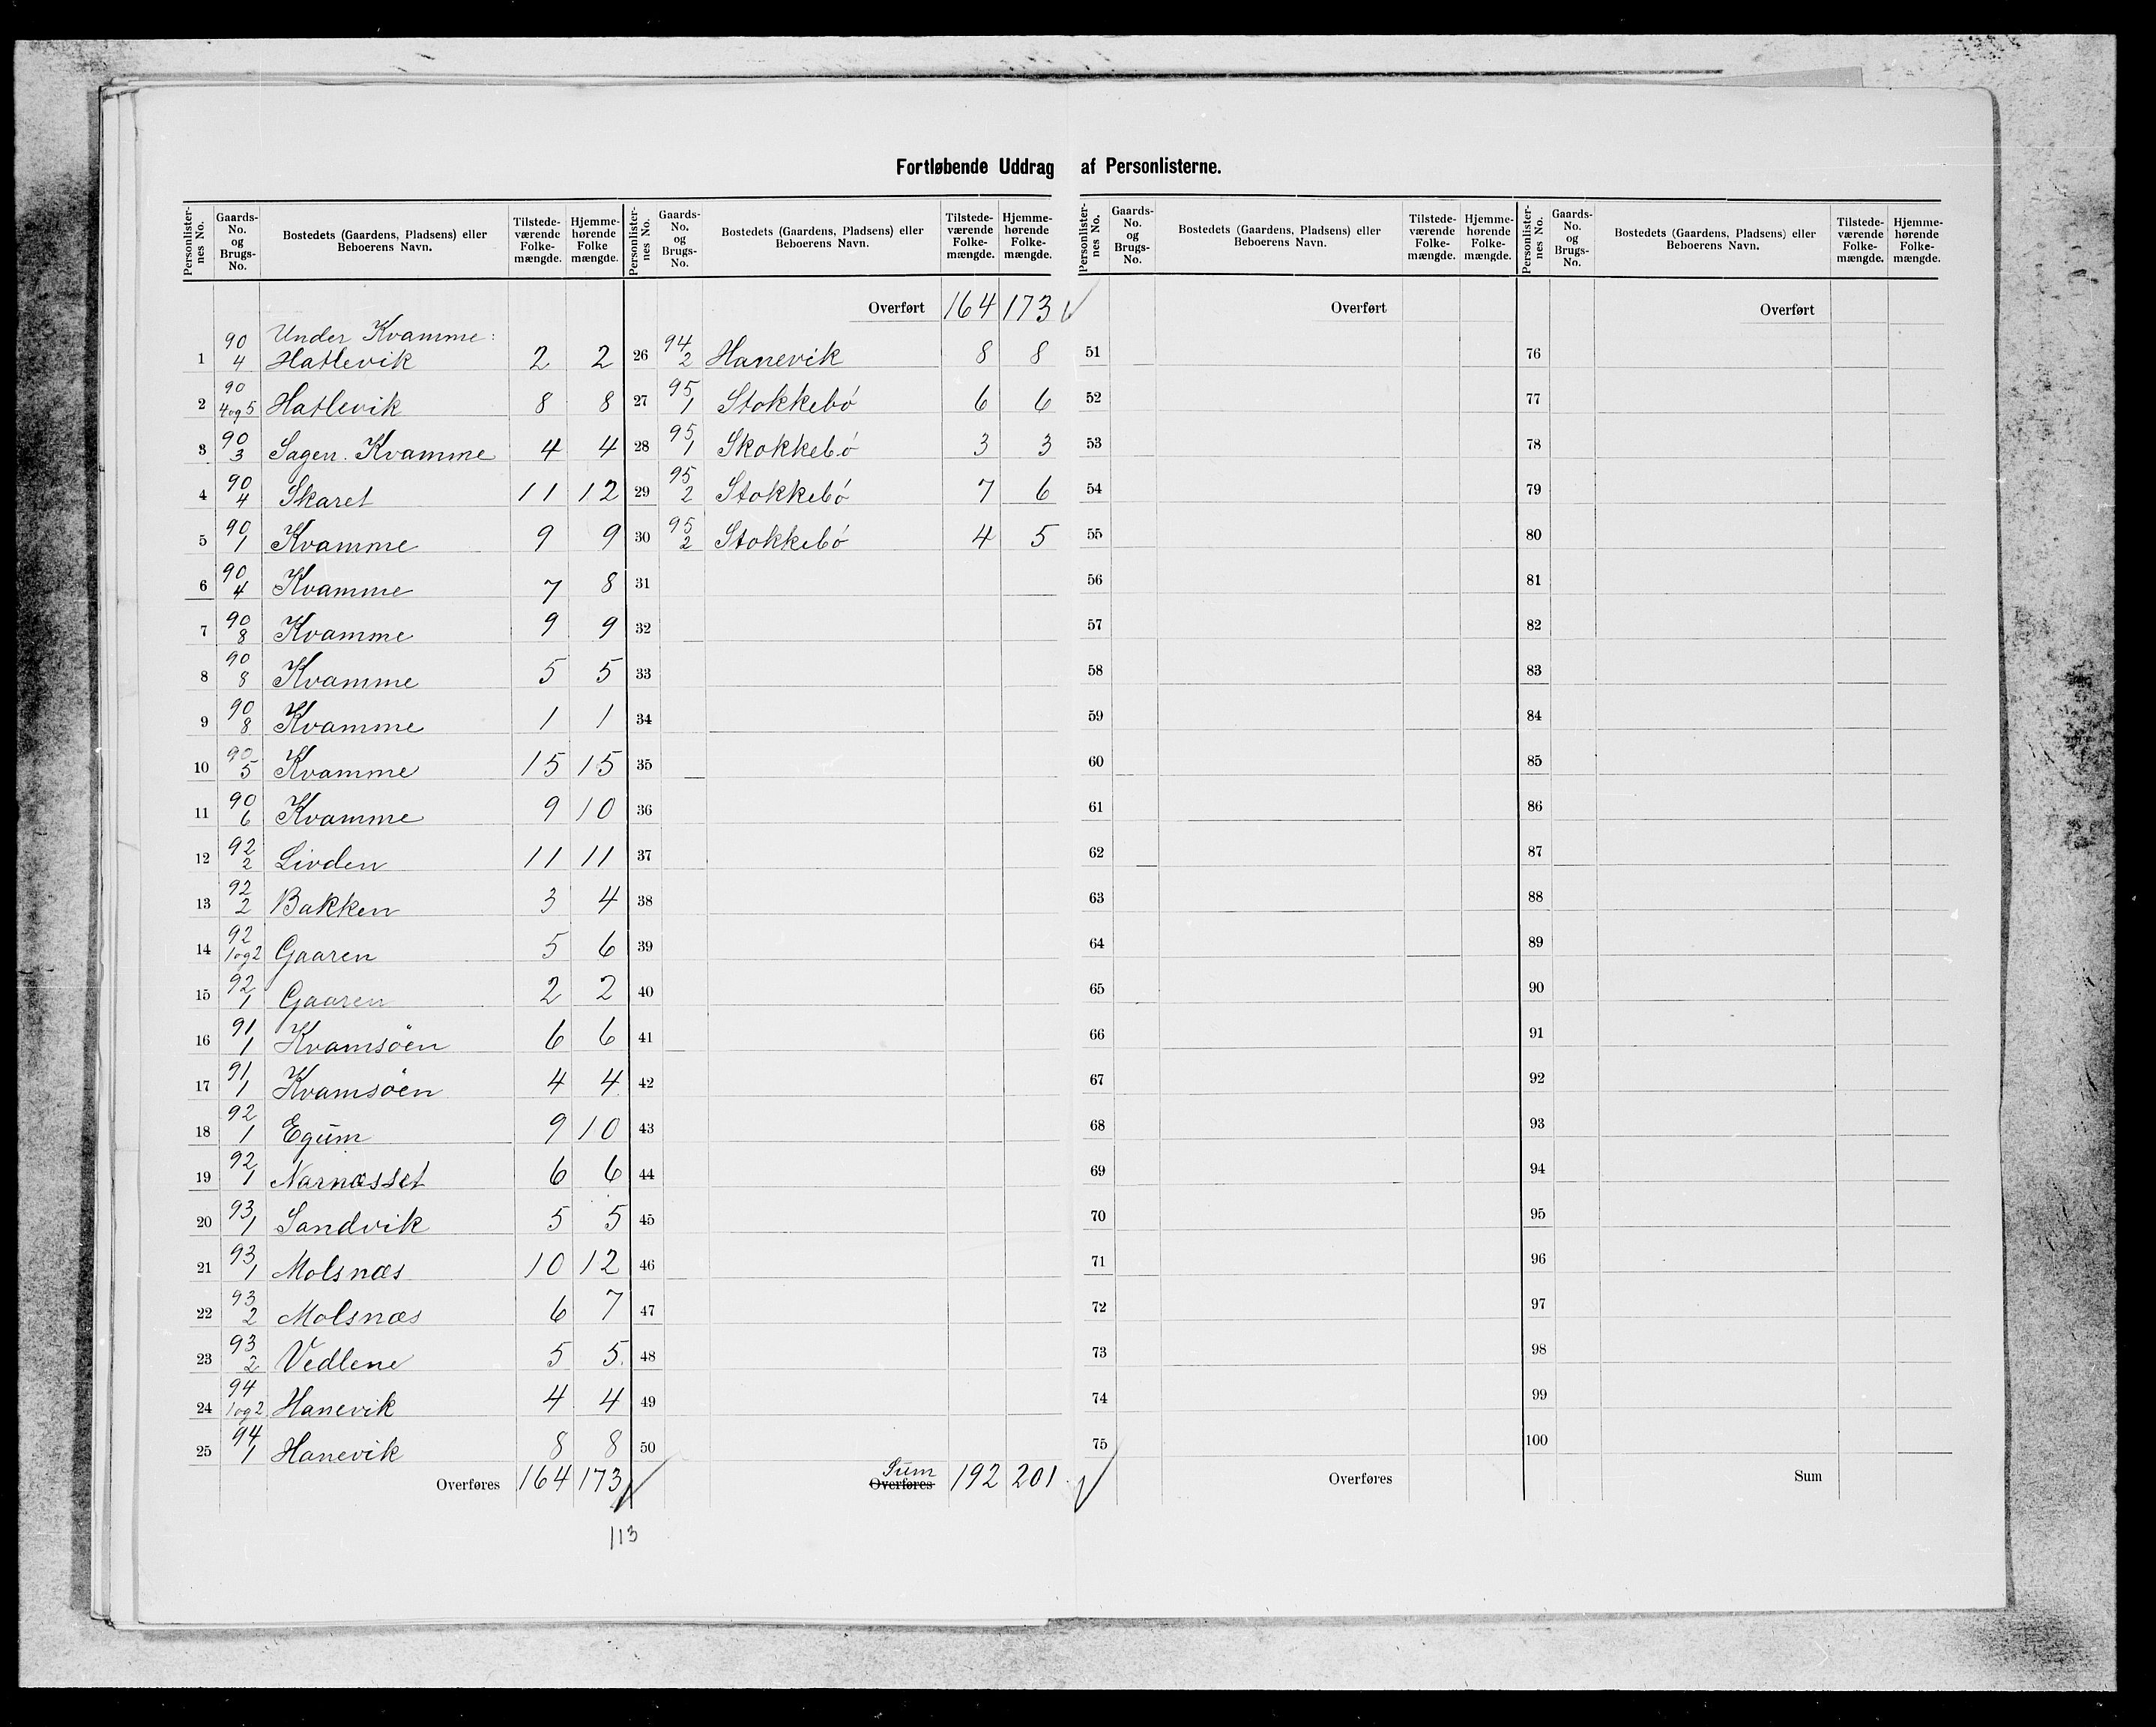 Fortløbende Uddrag af Personlisterne.
Personlister-nes No. | Gaards-No. og Brugs-No. | Bostedets (Gaardens, Pladsens) eller Beboerens Navn. | Tilstede-værende Folke-mængde. | Hjemme-hørende Folke mængde.
Under Kvamme:
1 90/4 Hatlevik 2 2
2 90/4og5 Hatlevik 8 8
3 90/3 Sagen. Kvamme 4 4
4 90/4 Skaret 11 12
5 90/1 Kvamme 9 9
6 90/4 Kvamme 7 8
7 90/8 Kvamme 9 9
8 90/8 Kvamme 5 5
9 90/8 Kvamme 1 1
10 90/5 Kvamme 15 15
11 90/6 Kvamme 9 10
12 92/2 Livden 11 11
13 92/2 Bakken 3 4
14 92/1og2 Gaaren 5 6
15 92/1 Gaaren 2 2
16 91/1 Kvamsöen 6 6
17 91/1 Kvamsöen 4 4
18 92/1 Egum 9 10
19 92/1 Narnæsset 6 6
20 93/1 Sandvik 5 5
21 93/1 Molsnæs 10 12
22 93/2 Molsnæs 6 7
23 93/2 Vedlene 5 5.
24 94/1og2 Hanevik 4 4
25 94/1 Hanevik 8 8
Overføres 164 173
113
Personlister-nes No. | Gaards-No. og Brugs-No. | Bostedets (Gaardens, Pladsens) eller Beboerens Navn. | Tilstede-værende Folke-mængde. | Hjemme-hørende Folke-mængde.
Overført 164 173
26 94/2 Hanevik 8 8
27 95/1 Stokkebó 6 6
28 95/1 Skokkebó 3 3
29 95/2 Stokkebó 7 6
30 95/2 Stokkebó 4 5
31
32
33
34
35
36
37
38
39
40
41
42
43
44
45
46
47
48
49
50
Sum
Overføres 192 201
Personlister-nes No. | Gaards-No. og Brugs-No. | Bostedets (Gaardens, Pladsens) eller Beboerens Navn. | Tilstede-værende Folke-mængde. | Hjemme-hørende Folke-mængde.
Overført
51
52
53
54
55
56
57
58
59
60
61
62
63
64
65
66
67
68
69
70
71
72
73
74
75
Overføres
Personlister-nes No. | Gaards-No. og Brugs-No. | Bostedets (Gaardens, Pladsens) eller Beboerens Navn. | Tilstede-værende Folke-mængde. | Hjemme-hørende Folke-mængde.
Overført
76
77
78
79
80
81
82
83
84
85
86
87
88
89
90
91
92
93
94
95
96
97
98
99
100
Sum